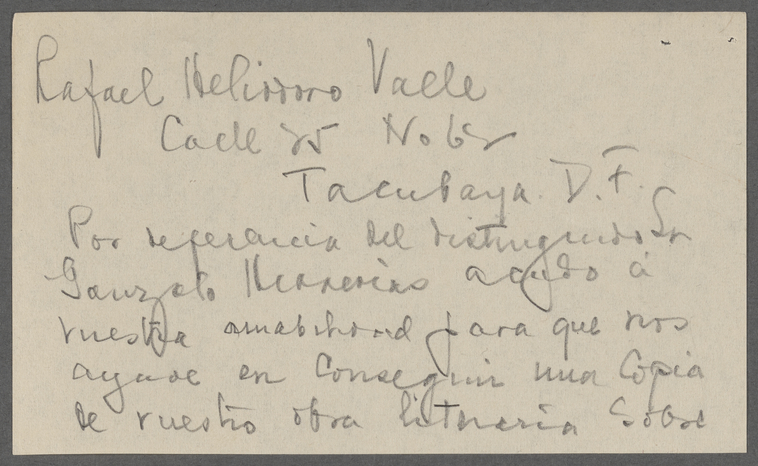 Rafael Heliodoro Valle
Calle 25 No 62
Tacubaya. D. F.
Por referencia del distinguido Sr
Gonzalo Herrerias acudo á
vuestra amabilidad para que nos
ayude en conseguir una copia
de vuestro obra literaria sobre